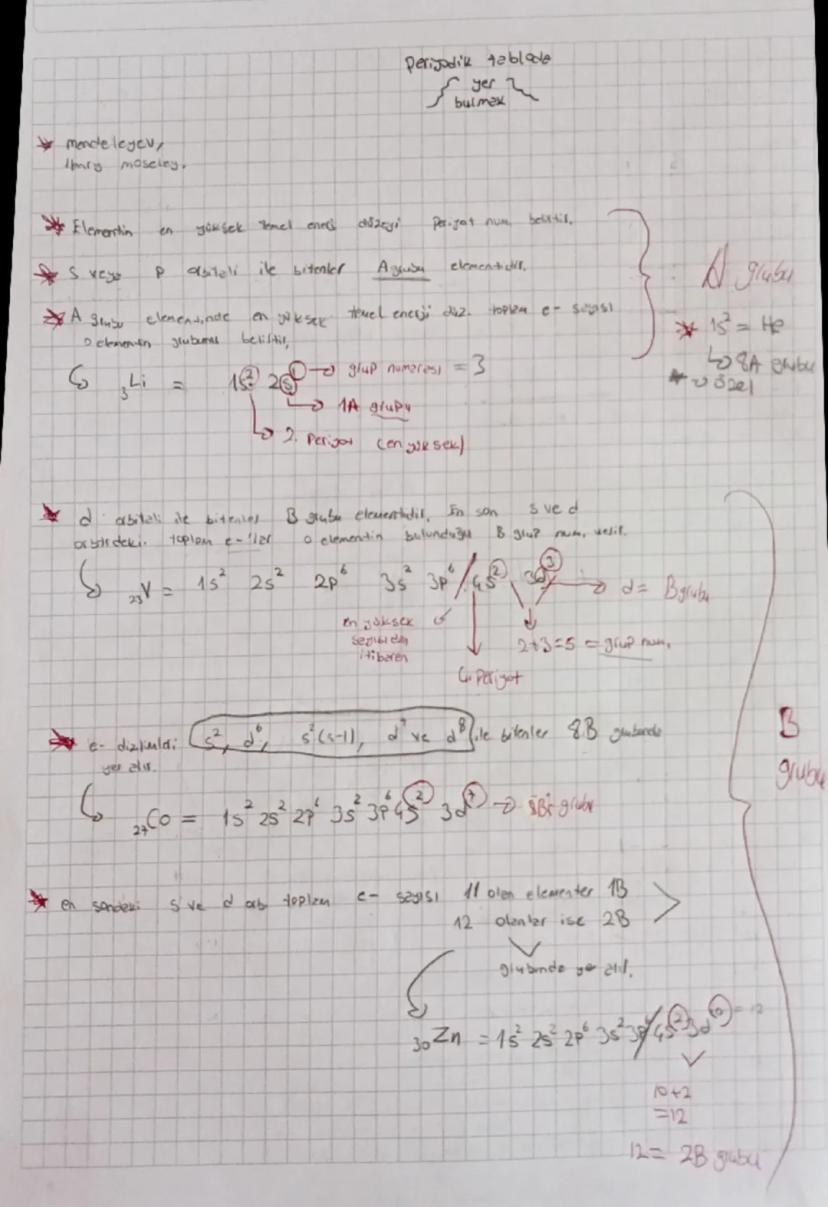 Periyodik tabloda
yer
bulmak
* mendeleyev,
Henry moseley.
* Elementin en yüksek temel enerji düzeyi periyot num. belirtir.
* S veya p orbitali ile bitenler A grubu elementidir.
* A grubu elementinde en yüksek temel enerji düz. toplam e- sayısı
o elementin grubunu belirtir.
₃Li = 1s² 2s¹ → grup numarası = 3
→ 1A grubu
→ 2. Periyot (en yüksek)
A grubu
* 1s² = He
↳ 8A grubu
* → özel
* d orbitali ile bitenler B grubu elementidir. En son s ve d
orbitaldeki toplam e-'lar o elementin bulunduğu B grup num. verir.
₂₃V = 1s² 2s² 2p⁶ 3s² 3p⁶ / 4s² 3d³ → d = B grubu
en yüksek
itibaren
2+3=5 = grup num.
4. Periyot
* e- dizilimleri s², d⁶, s²(s-1), d⁷ ve d⁸ ile bitenler 8B grubunda
yer alır.
₂₇Co = 1s² 2s² 2p⁶ 3s² 3p⁶ 4s² 3d⁷ → 8B grubu
B
grubu
* en sondaki s ve d orb. toplam e- sayısı 11 olan elementler 1B
12 olanlar ise 2B
grubunda yer alır.
₃₀Zn = 1s² 2s² 2p⁶ 3s² 3p⁶ / 4s² 3d¹⁰ = 12
10+2
=12
12 = 2B grubu